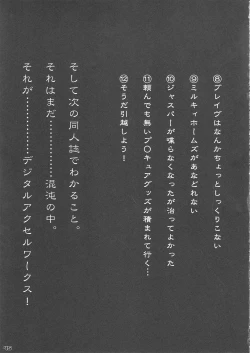 ⑧ブレイヴはなんかちょっとしっくりこない
⑨ミルキィホームズがあなどれない
⑩ジャスパーが喋らなくなったが治ってよかった
⑪頼んでも無いプ〇キュアグッズが積まれて行く…
⑫そうだ引越しよう！
そして次の同人誌でわかること。
それはまだ…………混沌の中。
それが…………デジタルアクセルワークス！